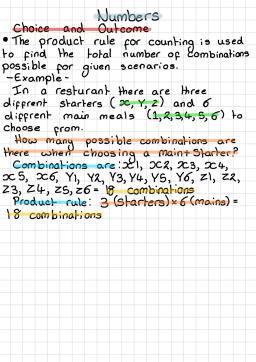 Numbers
Choice and Outcome
• The product rule for counting is used
to find the total number of combinations
possible for given scenarios.
-Example-
In a resturant there are three
diffrent starters (x, Y, Z) and 6
diffrent main meals (1,2,3,4,5,6) to
choose from.
How many possible combinations are
there when choosing a main+starter?
Combinations are: x1, x2, x3, x4,
x5, x6, Y1, Y2, Y3, Y4, Y5, Y6, Z1, Z2,
Z3, Z4, Z5, Z6 = 18 combinations
Product rule: 3 (starters) × 6 (mains) =
18 combinations